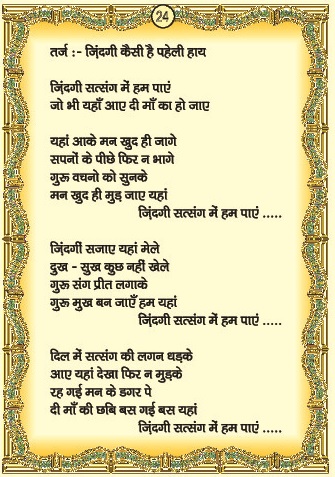 24
तर्ज :- ज़िंदगी कैसी है पहेली हाय
ज़िंदगी सत्संग में हम पाएं
जो भी यहाँ आए दी माँ का हो जाए
यहां आके मन खुद ही जागे
सपनों के पीछे फिर न भागे
गुरू वचनो को सुनके
मन खुद ही मुड़ जाए यहां
ज़िंदगी सत्संग में हम पाएं .....
ज़िंदगी सजाए यहां मेले
दुख - सुख कुछ नहीं खेले
गुरू संग प्रीत लगाके
गुरू मुख बन जाएँ हम यहां
ज़िंदगी सत्संग में हम पाएं .....
दिल में सत्संग की लगन धड़के
आए यहां देखा फिर न मुड़के
रह गई मन के डगर पे
दी माँ की छबि बस गई बस यहां
ज़िंदगी सत्संग में हम पाएं .....